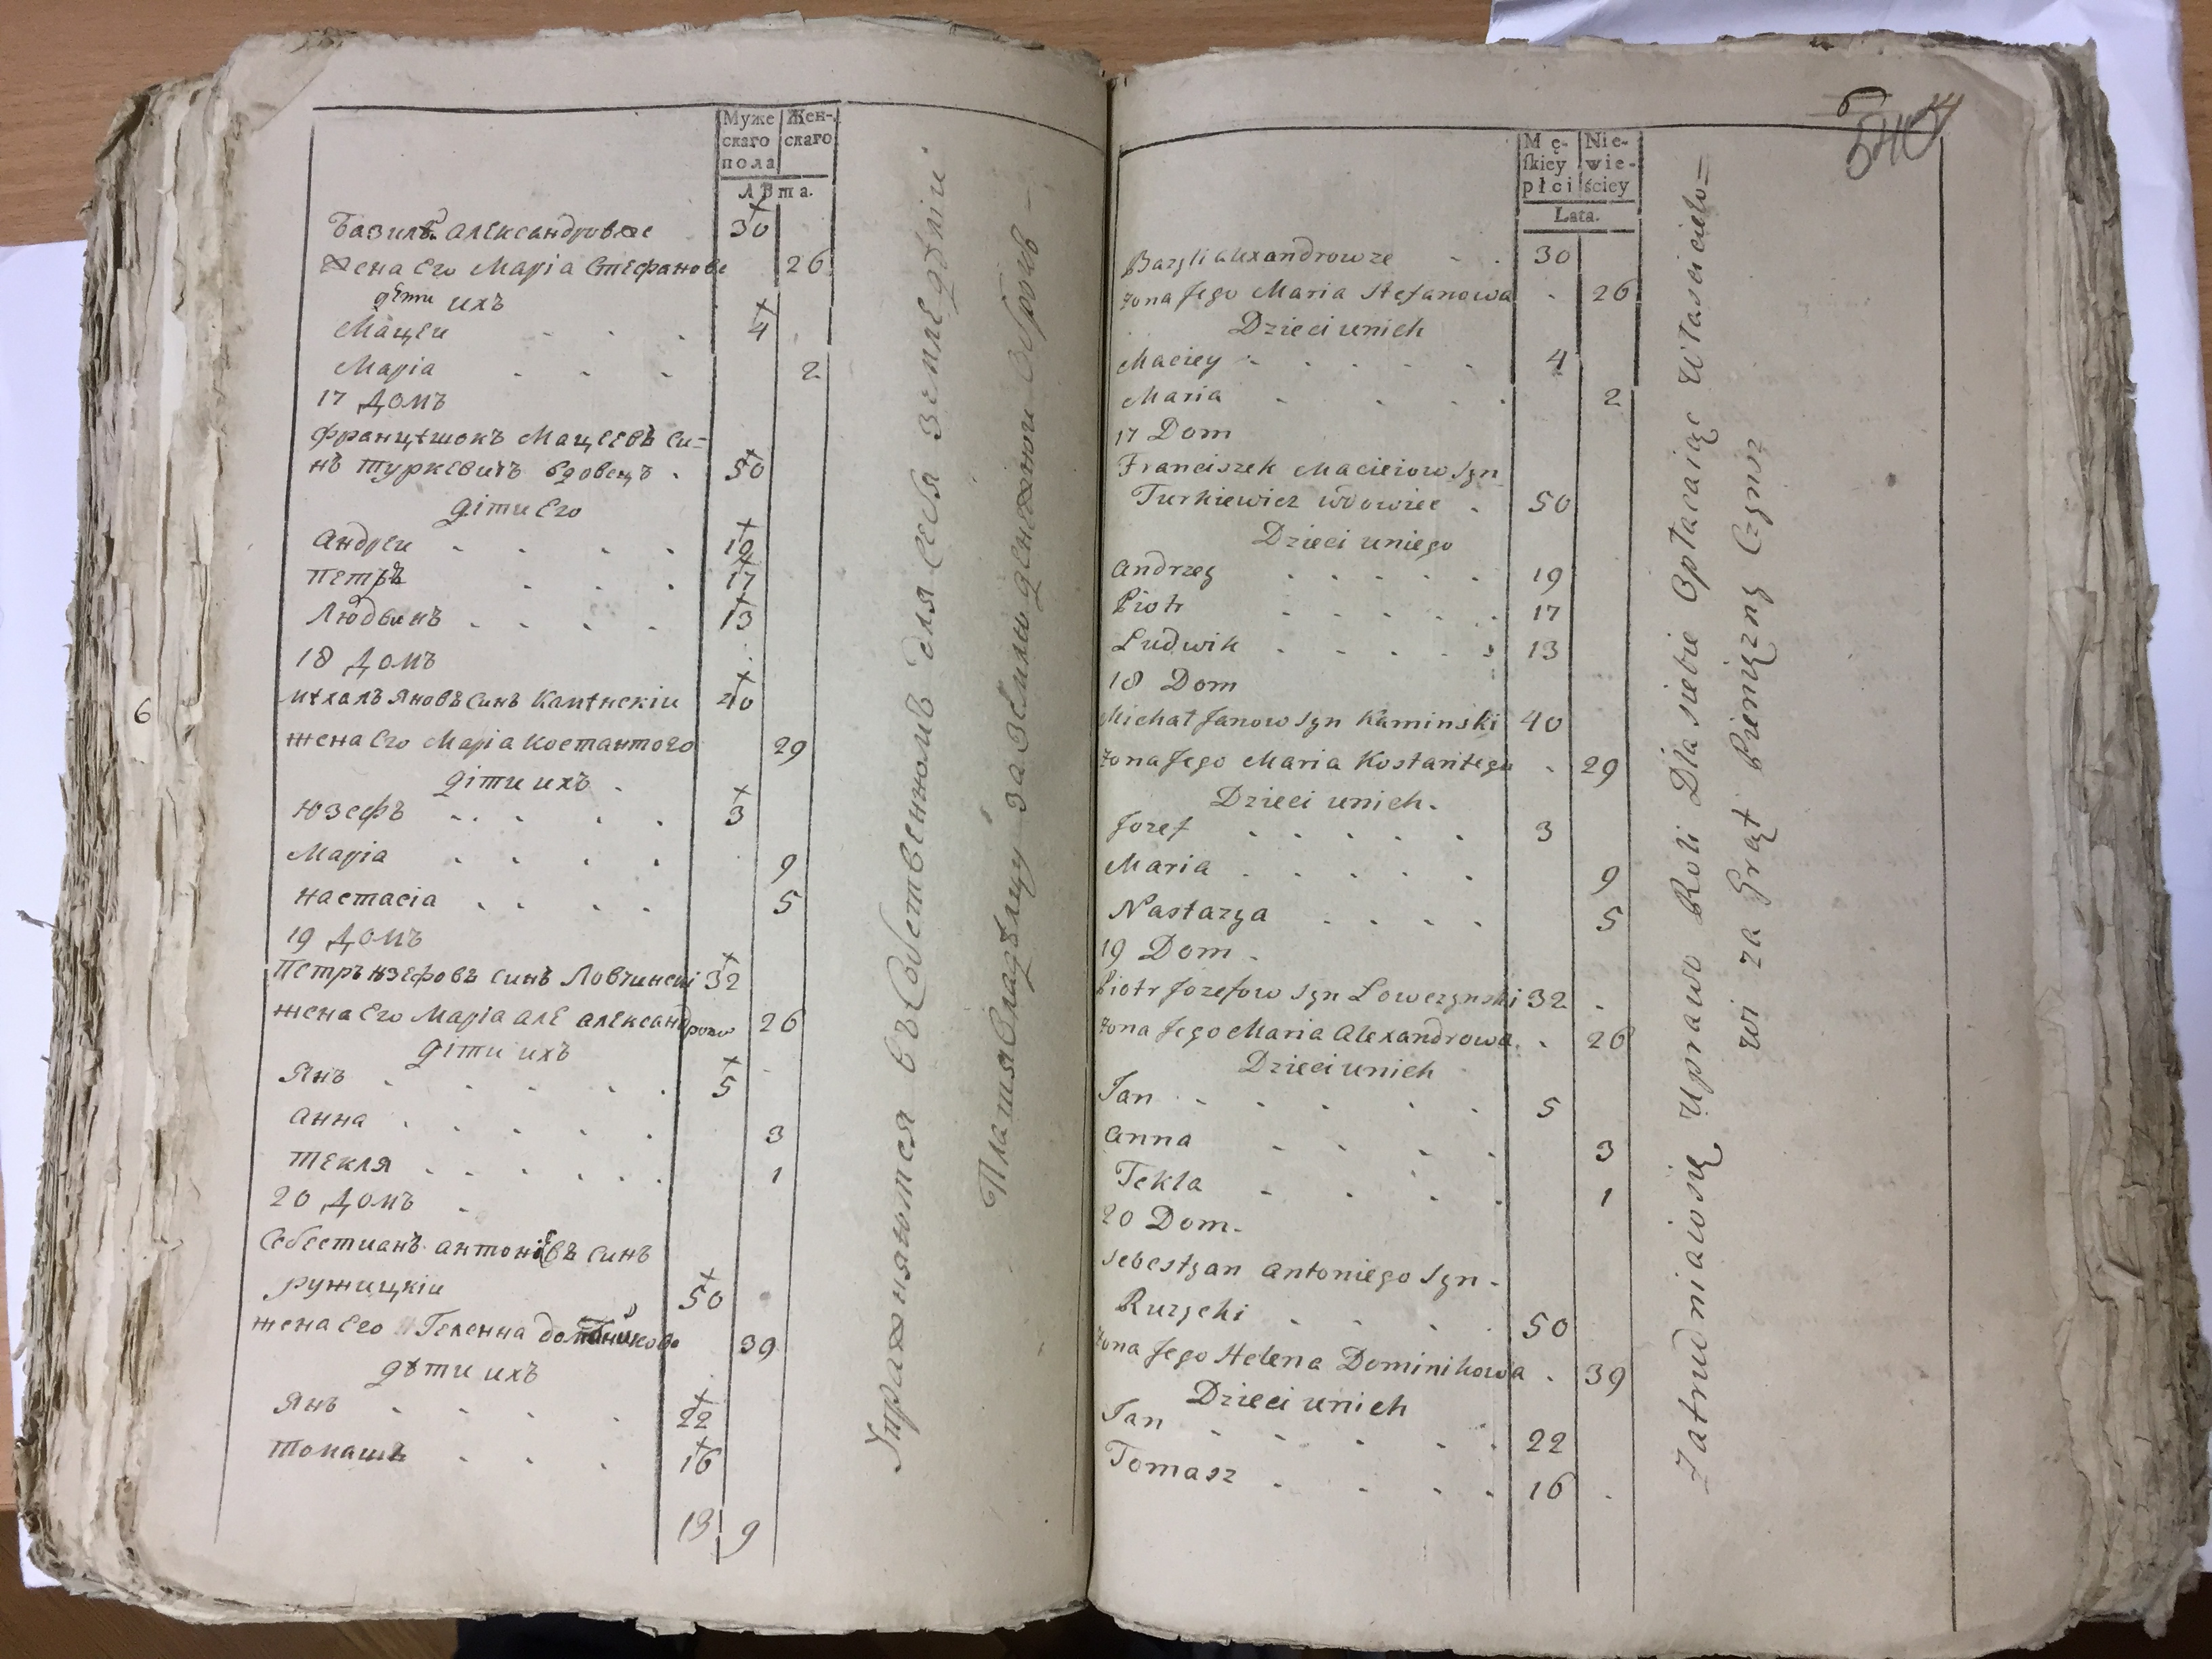 Муже
скаго
пола
Жен-
скаго
Лѣта.
Базилъ Александровъ 30
жена Его Марiа Стефанова 26
дѣти ихъ
Мацеи 4
Марiа 2
17 Домъ
Францѣшокъ Мацеевъ си=
нъ Туркевичъ вдовецъ . 50
дiти Его
Андреи 19
Петръ 17
Людвикъ 13
18 Домъ
Мѣхалъ Яновъ синъ Камѣнскiи 40
жена Его Марiа Костантого 29
дiти ихъ .
Юзефъ 3
Марiа 9
Настасiа 5
19 Домъ
Петръ Юзефовъ синъ Ловчински 32
жена Его Марiа але Александрова 26
дiти ихъ
Янъ 5
Анна 3
Текля 1
20 Домъ
Себестианъ Антонiевъ синъ
Ружицкiи 50
жена Его Геленна Доминикова 39
дѣти ихъ
Янъ 22
Томашъ 16
13 9
Упражняются въ Собственномъ для себя земледѣлiи
Платя Владѣлцу за Землю денежнои Оброкъ –
6
540
Mę-
ſkiey
płci
Nie-
wie-
ściey
Lata.
Bazyli Alexandrowze 30
żona Jego Maria Stefanowa 26
Dzieci unich
Maciey 4
Maria 2
17 Dom
Franciszek Macieiow Syn
Turkiewicz wdowiec 50
Dzieci uniego
Andrzey 19
Piotr 17
Ludwik 13
18 Dom
Michał Janow Syn Kaminski 40
żona Jego Maria Kostantego 29
Dzieci unich.
Jozef 3
Maria 9
Nastazya 5
19 Dom
Piotr Jozefow Syn Lowczynski 32
żona Jego Maria Alexandrowa 26
Dzieci unich
Jan 5
Anna 3
Tekla 1
20 Dom
Sebestyan Antoniego Syn
Ruzycki 50
żona Jego Helena Dominikowa 39
Dzieci unich
Jan 22
Tomasz 16
Zatrudniaią się Uprawo Roli Dla siebie Opłacaiąc Właścicielo=
wi za Grąt Pieniężny Czynsz